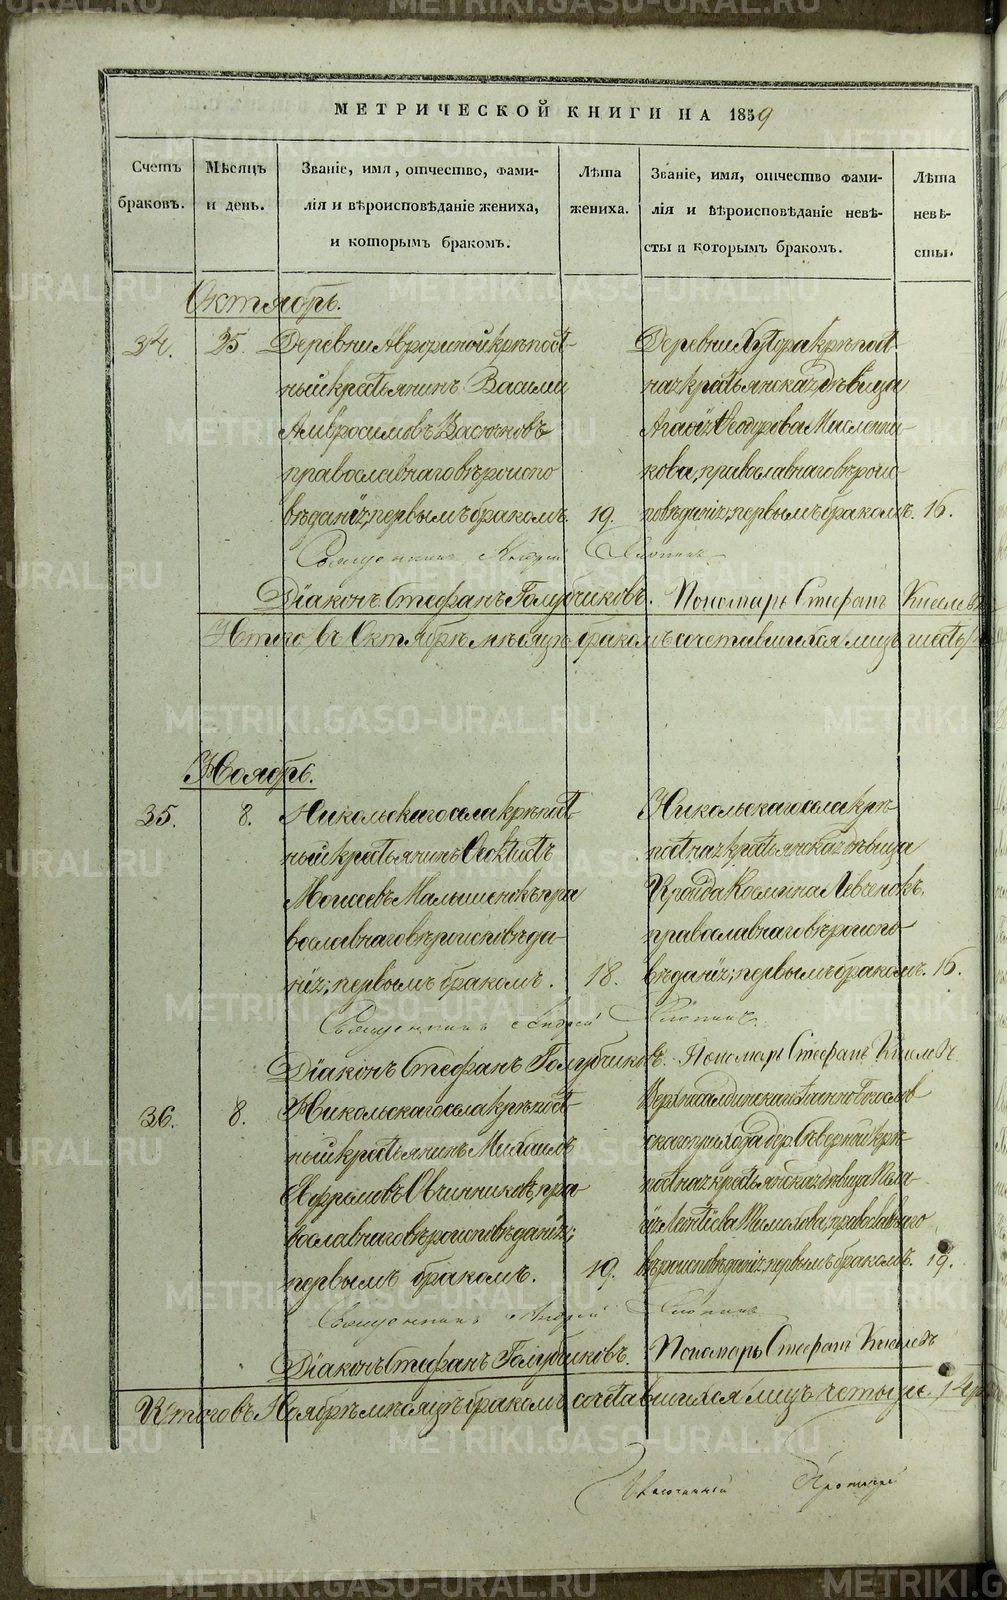 METRIKI.GASO-URAL.RU
МЕТРИЧЕСКОЙ КНИГИ НА 1859
Счетъ браковъ.
Мѣсяцъ и день.
Званіе, имя, отчество, фами-
лія и вѣроисповѣданіе жениха,
и которымъ бракомъ.
Лѣта жениха.
Званіе, имя, отчество фами-
лія и вѣроисповѣданіе невѣ-
сты и которымъ бракомъ.
Лѣта невѣ-
сты.
Октябрь.
34.
25.
Деревни Аврориной крѣпост-
ный крестьянинъ Василій
Амвросимовъ Васючковъ
православнаго вѣроиспо
вѣданія; первымъ бракомъ.
19.
Деревни Хутора крѣпост
ная крестьянская дѣвица
Агаѳія Ѳеодорова Масленни-
кова, православнаго вѣроис-
повѣданія; первымъ бракомъ.
16.
Священникъ Андрей
Діаконъ Стефанъ Голубчиковъ. Пономарь Стефанъ Киселевъ
Итого въ Октябрѣ мѣсяцѣ бракомъ сочетавшихся лицъ шесть
Ноябрь.
35.
8.
Никольскаго села крѣпост
ный крестьянинъ Ѳеоктистъ
Моисеевъ Малышенокъ, пра
вославнаго вѣроисповѣда-
нія; первымъ бракомъ.
18.
Никольскаго села крѣ-
постная крестьянская дѣвица
Ираида Космина Левченокъ.
православнаго вѣроиспо-
вѣданія; первымъ бракомъ.
16.
Священникъ Андрей
Діаконъ Стефанъ Голубчиковъ. Пономарь Стефанъ Киселевъ
36.
8.
Никольскаго села крѣпост-
ный крестьянинъ Михаилъ
Ефремовъ Овчинниковъ, пра
вославнаго вѣроисповѣданія;
первымъ бракомъ.
19.
Верхнесалдинскаго Іоанно Богослов
скаго прихода дер. Сѣверной крѣ-
постная крестьянская дѣвица Пела-
гія Леонтіева православнаго
вѣроисповѣданія, первымъ бракомъ.
19.
Священникъ Андрей
Діаконъ Стефанъ Голубчиковъ. Пономарь Стефанъ Киселевъ
Итого въ Ноябрѣ мѣсяцѣ бракомъ сочетавшихся лицъ четыре.